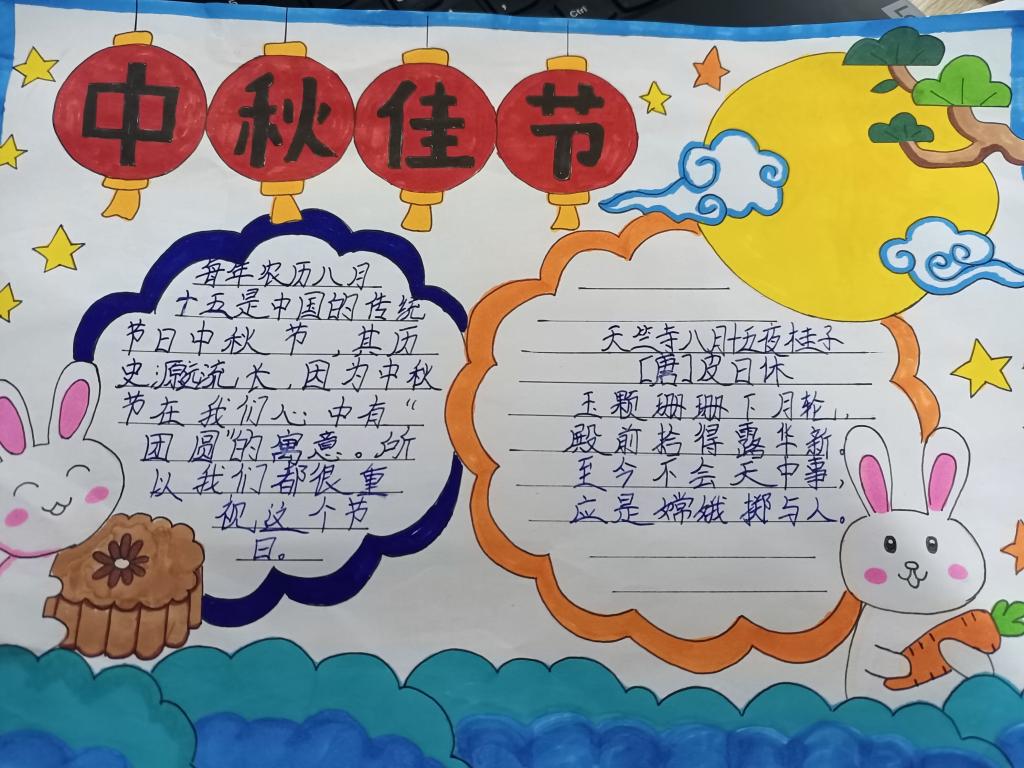 中秋佳节
每年农历八月
十五是中国的传统
节日中秋节,其历
史源远流长,因为中秋
节在我们心中有“
团圆”的寓意。所
以我们都很重
视这个节
日。
天竺寺八月十五夜桂子
[唐]皮日休
玉颗珊珊下月轮,
殿前拾得露华新。
至今不会天中事,
应是嫦娥掷与人。
Ctrl